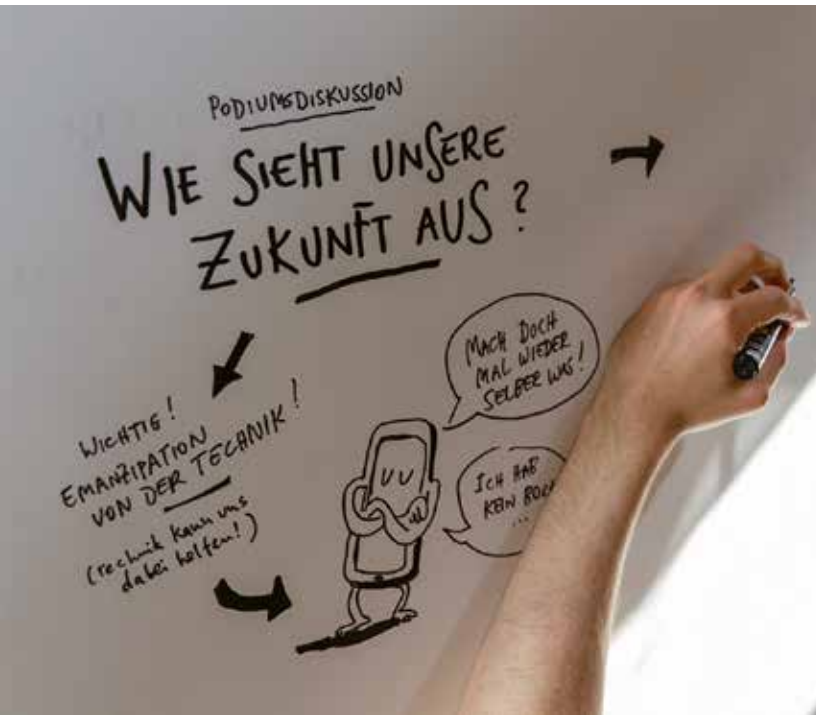 PODIUMSDISKUSSION
WIE SIEHT UNSERE
ZUKUNFT AUS?
WICHTIG!
EMANZIPATION
VON DER TECHNIK!
(Technik kann uns
dabei helfen!)
MACH DOCH
MAL WIEDER
SELBER WAS!
ICH HAB
KEIN BOCK
...